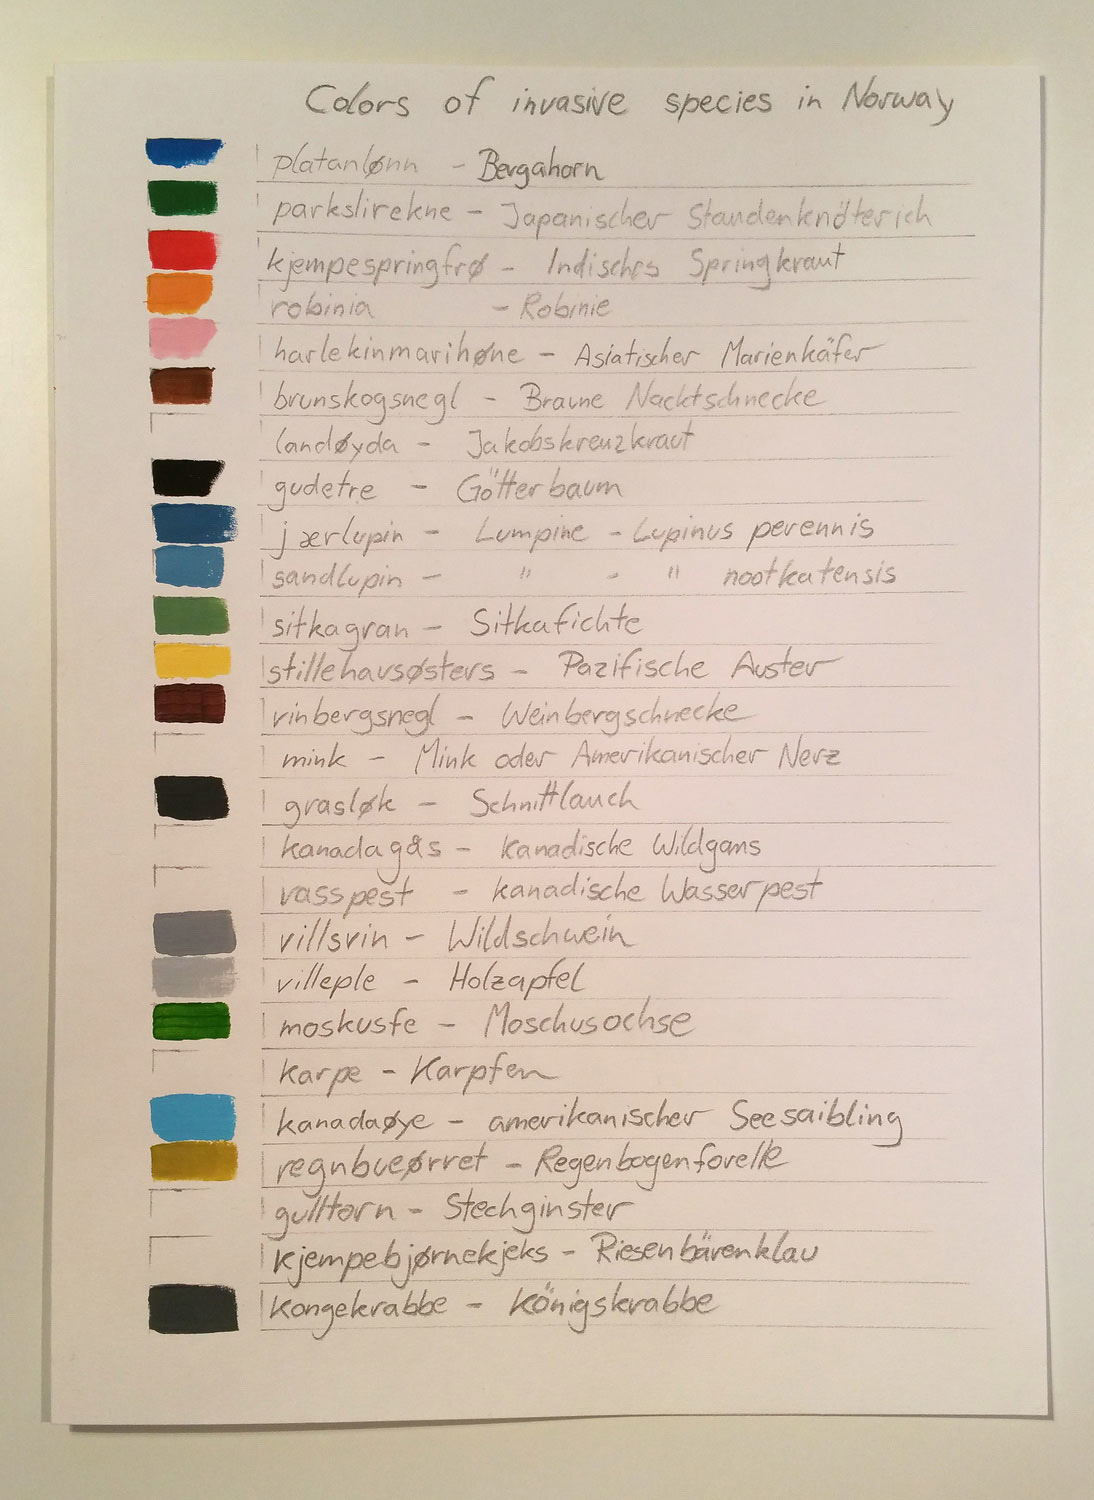 Colors of invasive species in Norway
platanlønn - Bergahorn
parkslirekne - Japanischer Staudenknöterich
kjempespringfrø - Indisches Springkraut
robinia - Robinie
harlekinmarihøne - Asiatischer Marienkäfer
brunskogsnegl - Braune Nacktschnecke
landøyda - Jakobskreuzkraut
gudetre - Götterbaum
jærlupin - Lumpine - Lupinus perennis
sandlupin - " - " nootkatensis
sitkagran - Sitkafichte
stillehavsøsters - Pazifische Auster
vinbergsnegl - Weinbergschnecke
mink - Mink oder Amerikanischer Nerz
grasløk - Schnittlauch
kanadagås - Kanadische Wildgans
vasspest - kanadische Wasserpest
villsvin - Wildschwein
villeple - Holzapfel
moskusfe - Moschusochse
karpe - Karpfen
kanadaøye - amerikanischer Seesaibling
regnbueørret - Regenbogenforelle
gulltorn - Stechginster
kjempebjørnekjeks - Riesenbärenklau
kongekrabbe - Königskrabbe